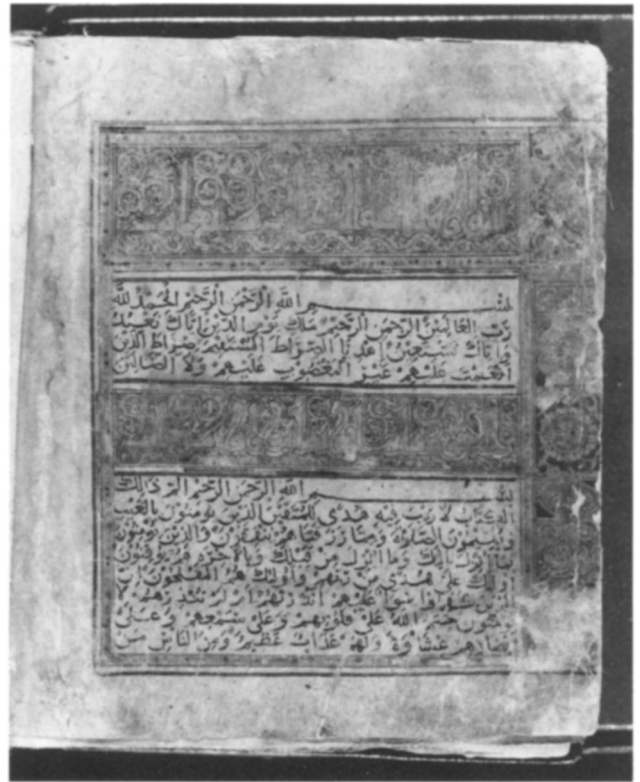 بسم الله الرحمن الرحيم الحمد لله
رب العالمين الرحمن الرحيم ملك يوم الدين اياك نعبد
واياك نستعين اهدنا الصراط المستقيم صراط الذين
انعمت عليهم غير المغضوب عليهم ولا الضالين
بسم الله الرحمن الرحيم الم ذلك
الكتاب لا ريب فيه هدى للمتقين الذين يؤمنون بالغيب
ويقيمون الصلوة ومما رزقناهم ينفقون والذين يؤمنون
بما انزل اليك وما انزل من قبلك وبالاخرة هم يوقنون
اولئك على هدى من ربهم واولئك هم المفلحون ان
الذين كفروا سوا عليهم انذرتهم ام لم تنذرهم لا
يؤمنون ختم الله على قلوبهم وعلى سمعهم وعلى
ابصارهم غشاوة ولهم عذاب عظيم ومن الناس من